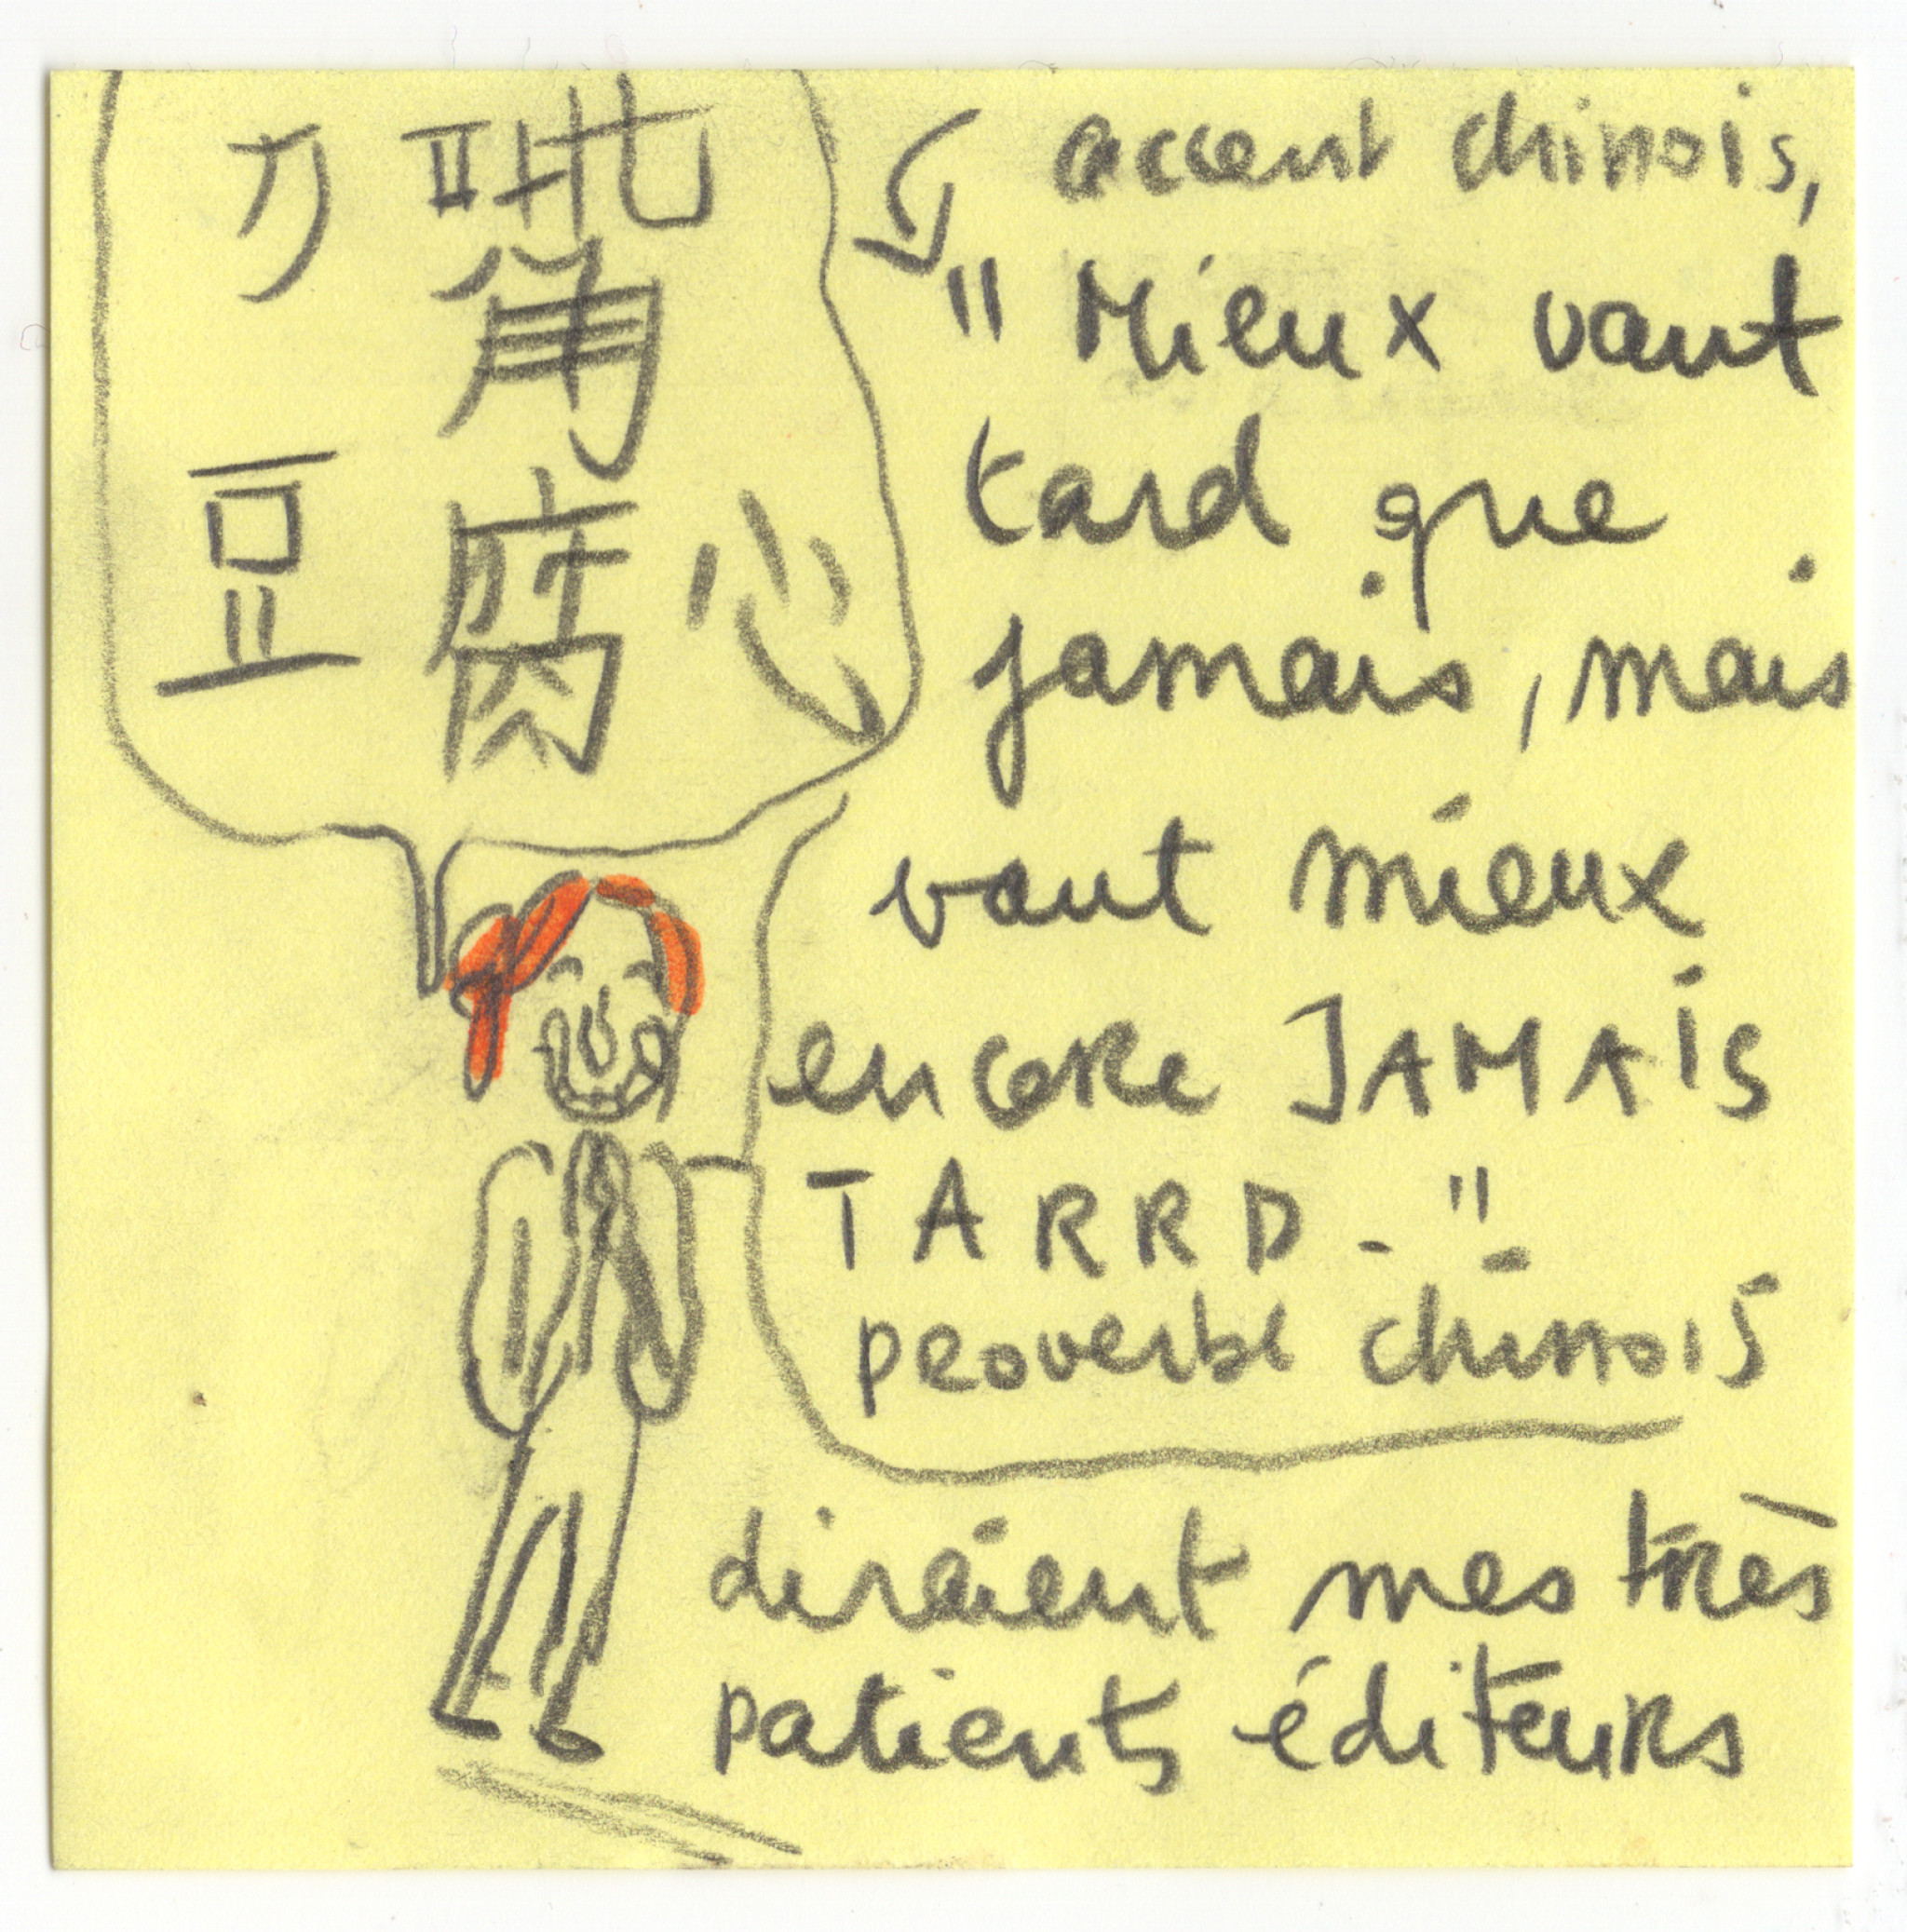 刀 嘴
豆 腐 心
accent chinois,
" Mieux vaut
tard que
jamais, mais
vaut mieux
encore JAMAIS
TARRD - "
proverbe chinois
diraient mes très
patients éditeurs